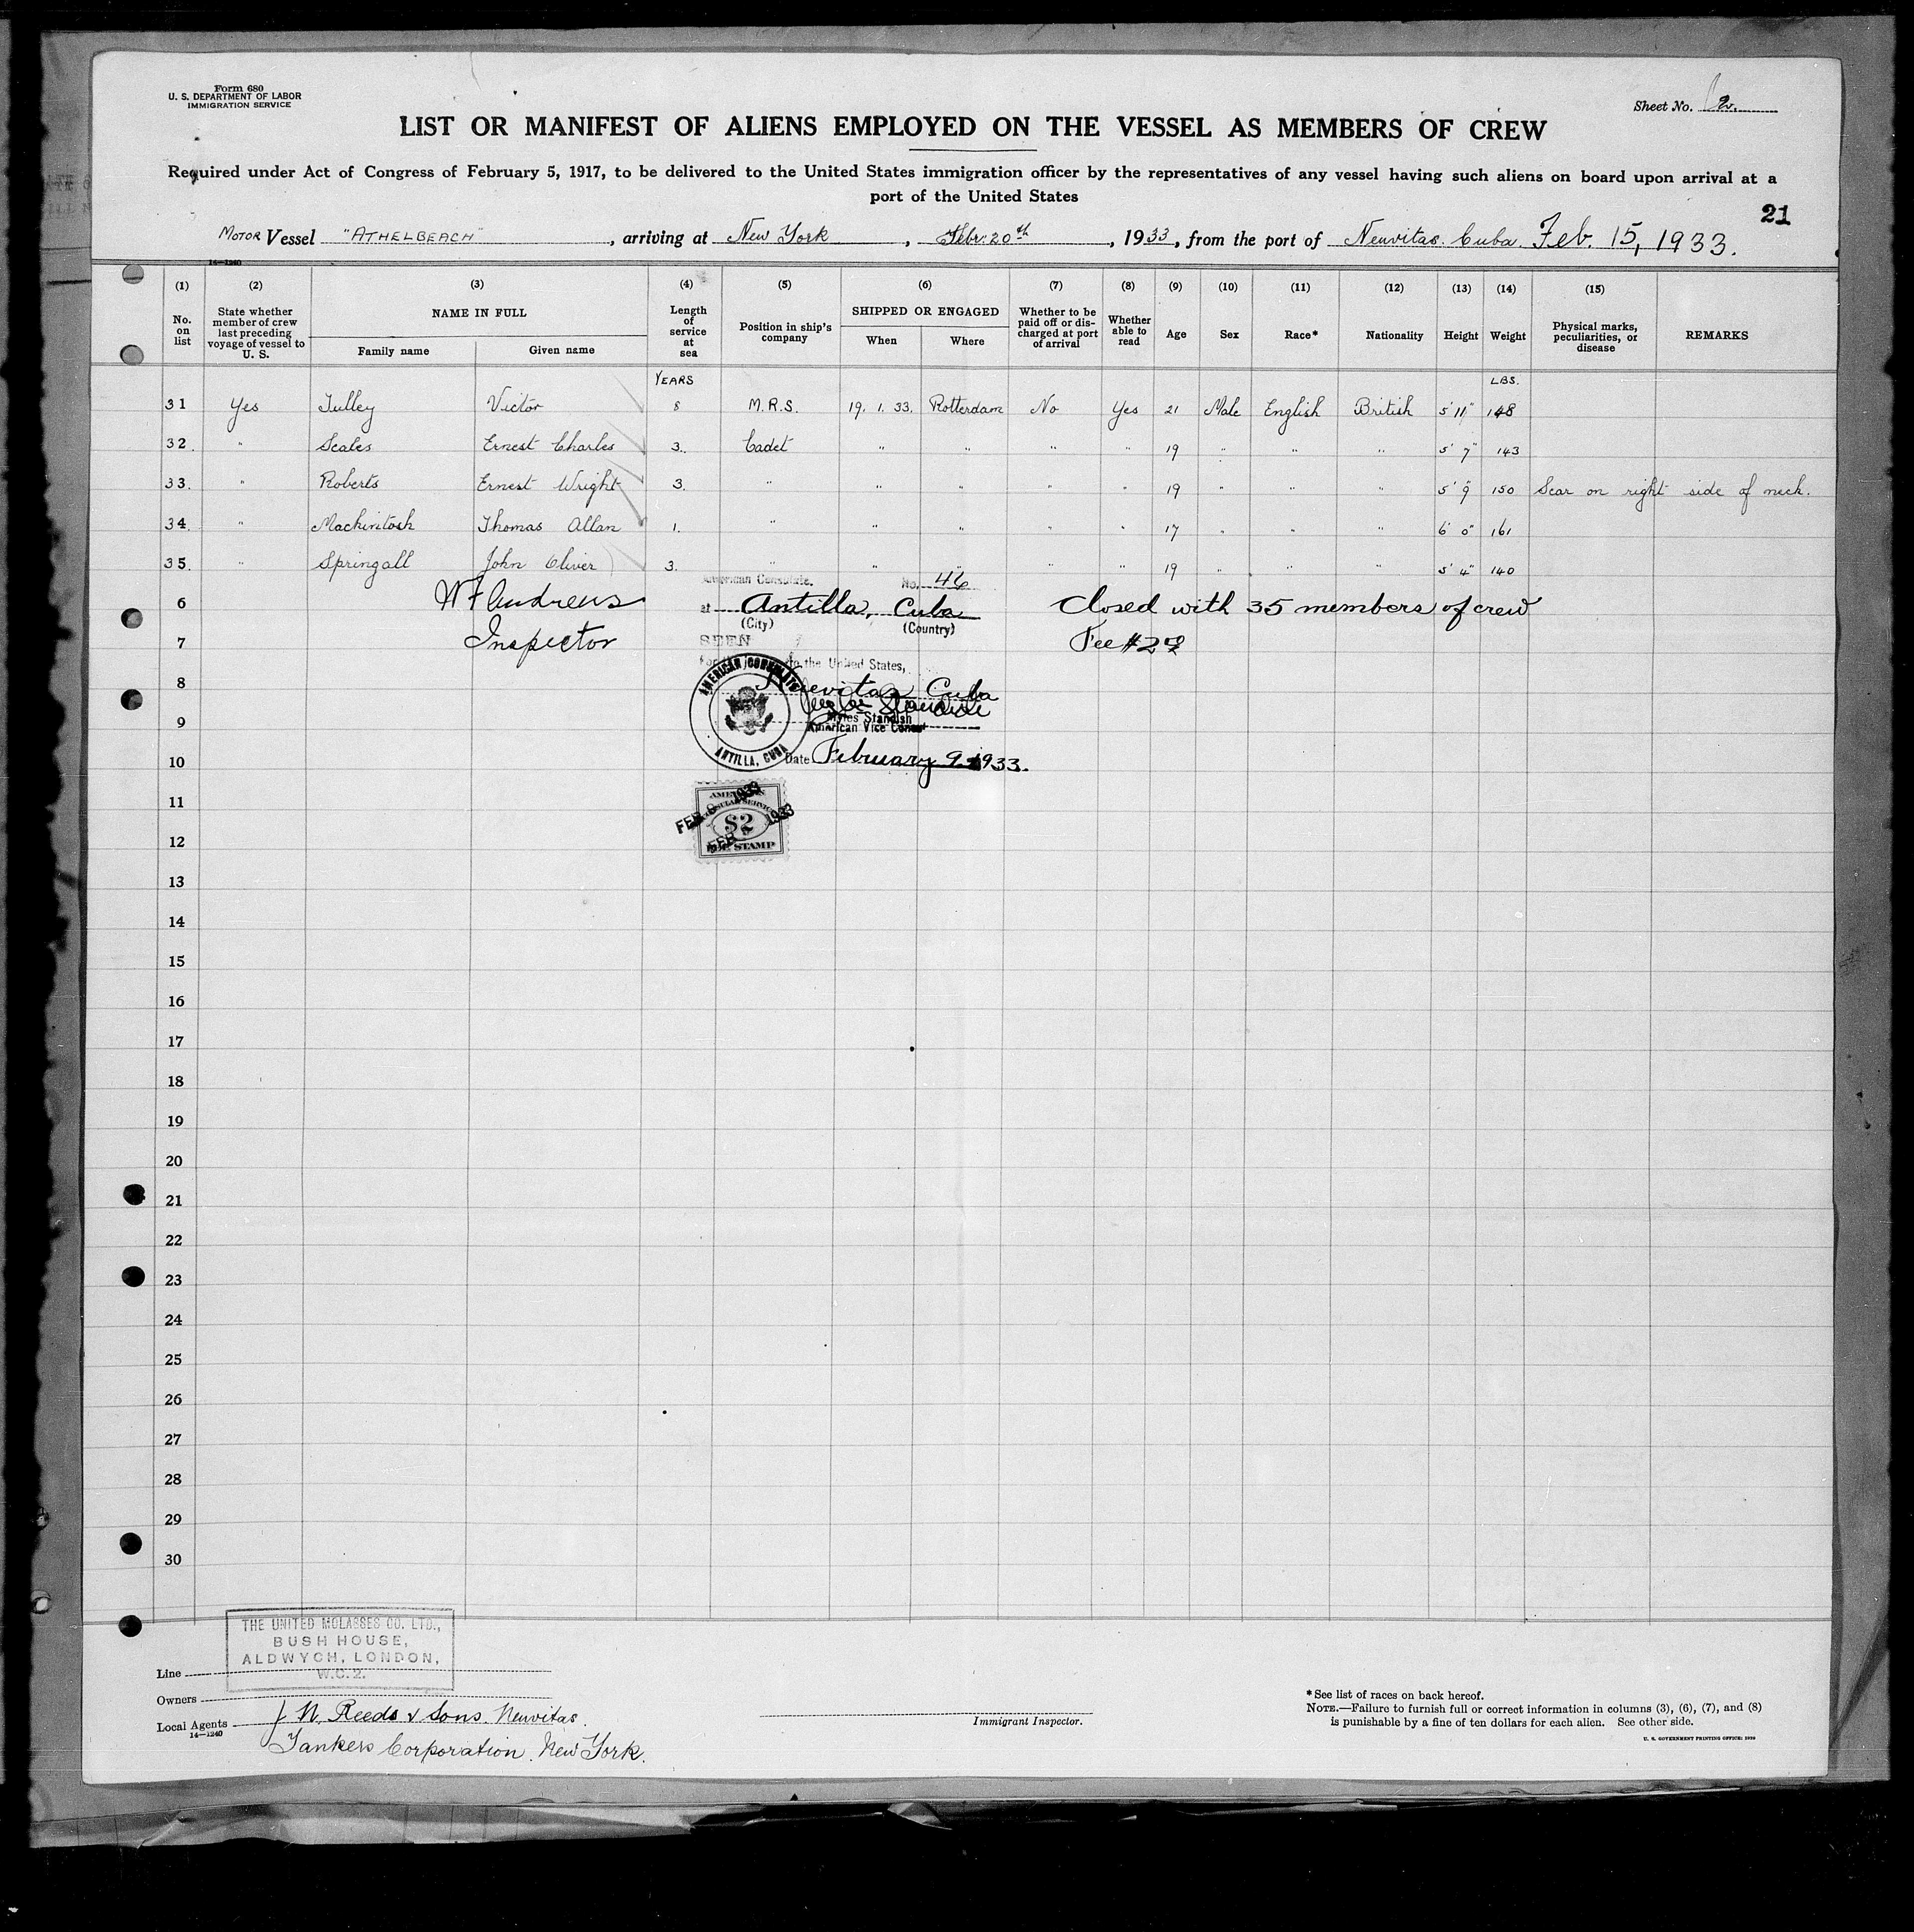 Form 680
U. S. DEPARTMENT OF LABOR
IMMIGRATION SERVICE
Sheet No. 2.
LIST OR MANIFEST OF ALIENS EMPLOYED ON THE VESSEL AS MEMBERS OF CREW
Required under Act of Congress of February 5, 1917, to be delivered to the United States immigration officer by the representatives of any vessel having such aliens on board upon arrival at a
port of the United States
21
MOTOR Vessel "ATHELBEACH", arriving at New York, Febr: 20th, 1933, from the port of Neuvitas. Cuba. Feb. 15, 1933.
14—1240
(1) (2) (3) (4) (5) (6) (7) (8) (9) (10) (11) (12) (13) (14) (15)
No. on list
State whether member of crew last preceding voyage of vessel to U. S.
NAME IN FULL
Family name Given name
Length of service at sea
Position in ship's company
SHIPPED OR ENGAGED
When Where
Whether to be paid off or discharged at port of arrival
Whether able to read
Age Sex Race* Nationality Height Weight
Physical marks, peculiarities, or disease
REMARKS
YEARS LBS.
31 Yes Tulley Victor 8 M.R.S. 19. 1. 33. Rotterdam No Yes 21 Male English British 5' 11" 148
32. " Scales Ernest Charles 3. Cadet " " " " 19 " " " 5' 7" 143
33. " Roberts Ernest Wright 3. " " " " " 19 " " " 5' 9" 150 Scar on right side of neck.
34. " Mackintosh Thomas Allan 1. " " " " " 17 " " " 6' 0" 161
35. " Springall John Oliver 3. " " " " " 19 " " " 5' 4" 140
American Consulate. No. 46
6 W F Andrews at Antilla, Cuba Closed with 35 members of crew
(City) (Country)
7 Inspector SEEN Fee $2.00
to the United States,
8 Nuevitas Cuba
9 Myles Standish
Myles Standish
American Vice Consul
AMERICAN CONSULATE
ANTILLA, CUBA
10 Date February 9. 1933.
11
AMERICAN
CONSULAR SERVICE
FEB 1933
$2
FEB 1933
FEE STAMP
12
13
14
15
16
17
18
19
20
21
22
23
24
25
26
27
28
29
30
THE UNITED MOLASSES CO. LTD.,
BUSH HOUSE,
ALDWYCH, LONDON,
W.C.2.
Line
Owners
Local Agents J N. Reeds & Sons. Neuvitas.
14—1240
Tankers Corporation. New York.
Immigrant Inspector.
*See list of races on back hereof.
NOTE.—Failure to furnish full or correct information in columns (3), (6), (7), and (8)
is punishable by a fine of ten dollars for each alien. See other side.